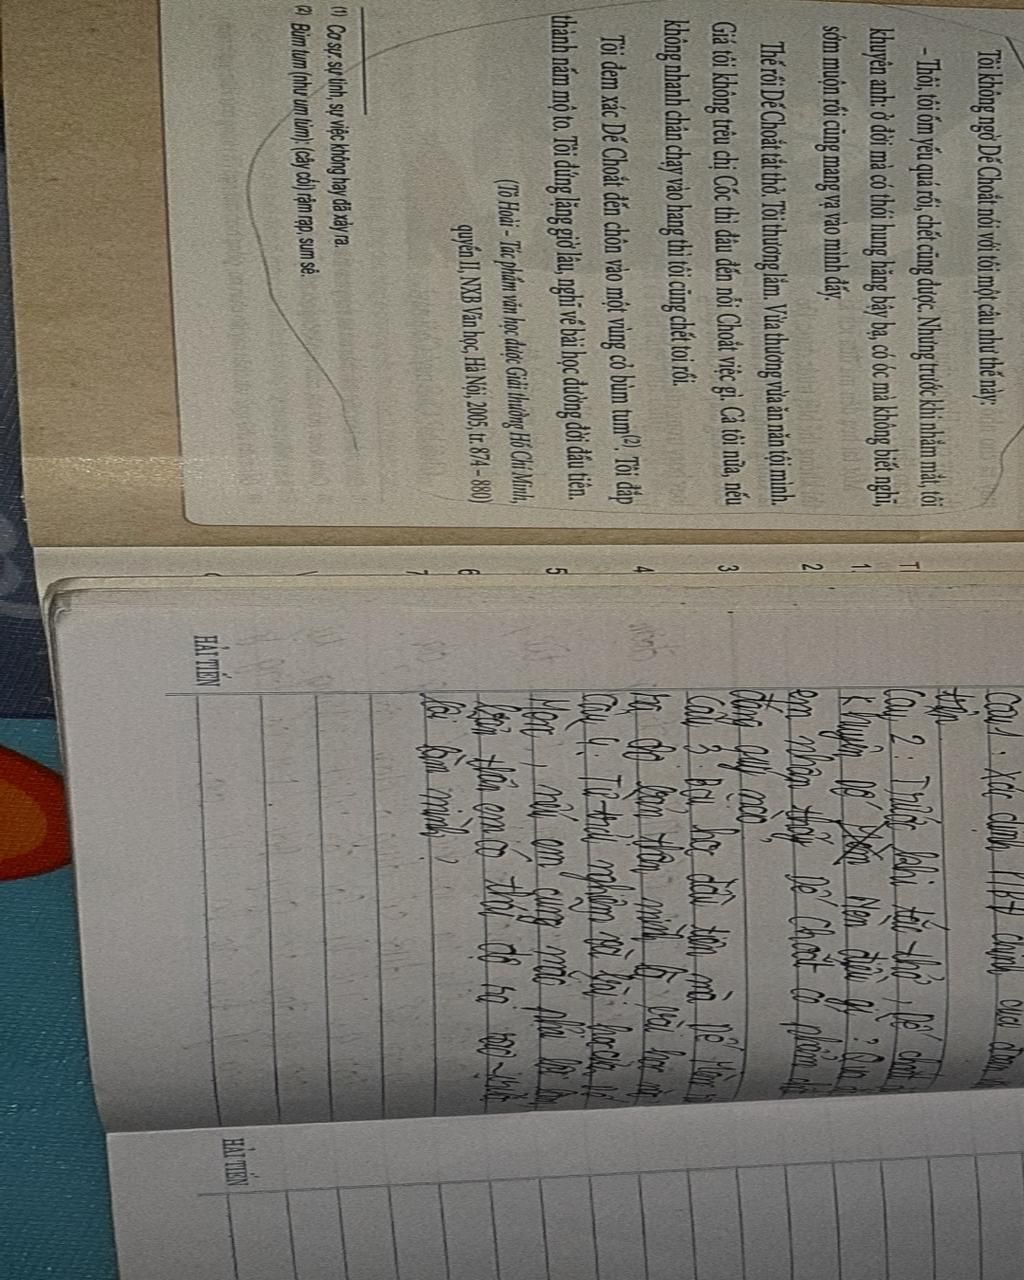 Tôi không ngờ Dế Choắt nói với tôi một câu như thế này:
- Thôi, tôi ốm yếu quá rồi, chết cũng được. Nhưng trước khi nhắm mắt, tôi
khuyên anh: ở đời mà có thói hung hăng bậy bạ, có óc mà không biết nghĩ,
sớm muộn rồi cũng mang vạ vào mình đấy.
Thế rồi Dế Choắt tắt thở. Tôi thương lắm. Vừa thương vừa ăn năn tội mình.
Giá tôi không trêu chị Cốc thì đâu đến nỗi Choắt việc gì. Cả tôi nữa, nếu
không nhanh chân chạy vào hang thì tôi cũng chết toi rồi.
Tôi đem xác Dế Choắt đến chôn vào một vùng cỏ bùm tum(2). Tôi đắp
thành nấm mộ to. Tôi đứng lặng giờ lâu, nghĩ về bài học đường đời đầu tiên.
(Tô Hoài – Tác phẩm văn học được Giải thưởng Hồ Chí Minh,
quyển II, NXB Văn học, Hà Nội, 2005, tr. 874 – 880)
(1) Cơ sự: sự tình, sự việc không hay đã xảy ra.
(2) Bùm tum (như um tùm): (cây cối) rậm rạp, sum sê.
T
1.
2
3
4
5
6
7
Câu 1. Xác định PTBĐ chính của đoạn
Câu 2: Trước khi tắt thở, dế choắt
khuyên dế Mèn điều gì? Qua
em nhận thấy dế Choắt có phẩm
đáng quý nào
Câu 3: Bài học đầu tiên mà dế Mèn
ra cho bản thân mình là bài học
Câu 4: Từ trải nghiệm và bài học của
Mèn, nếu em cũng mắc phải lỗi
bản thân em có thái độ
lỗi lầm mình?
HẢI TIẾN
HẢI TIẾN